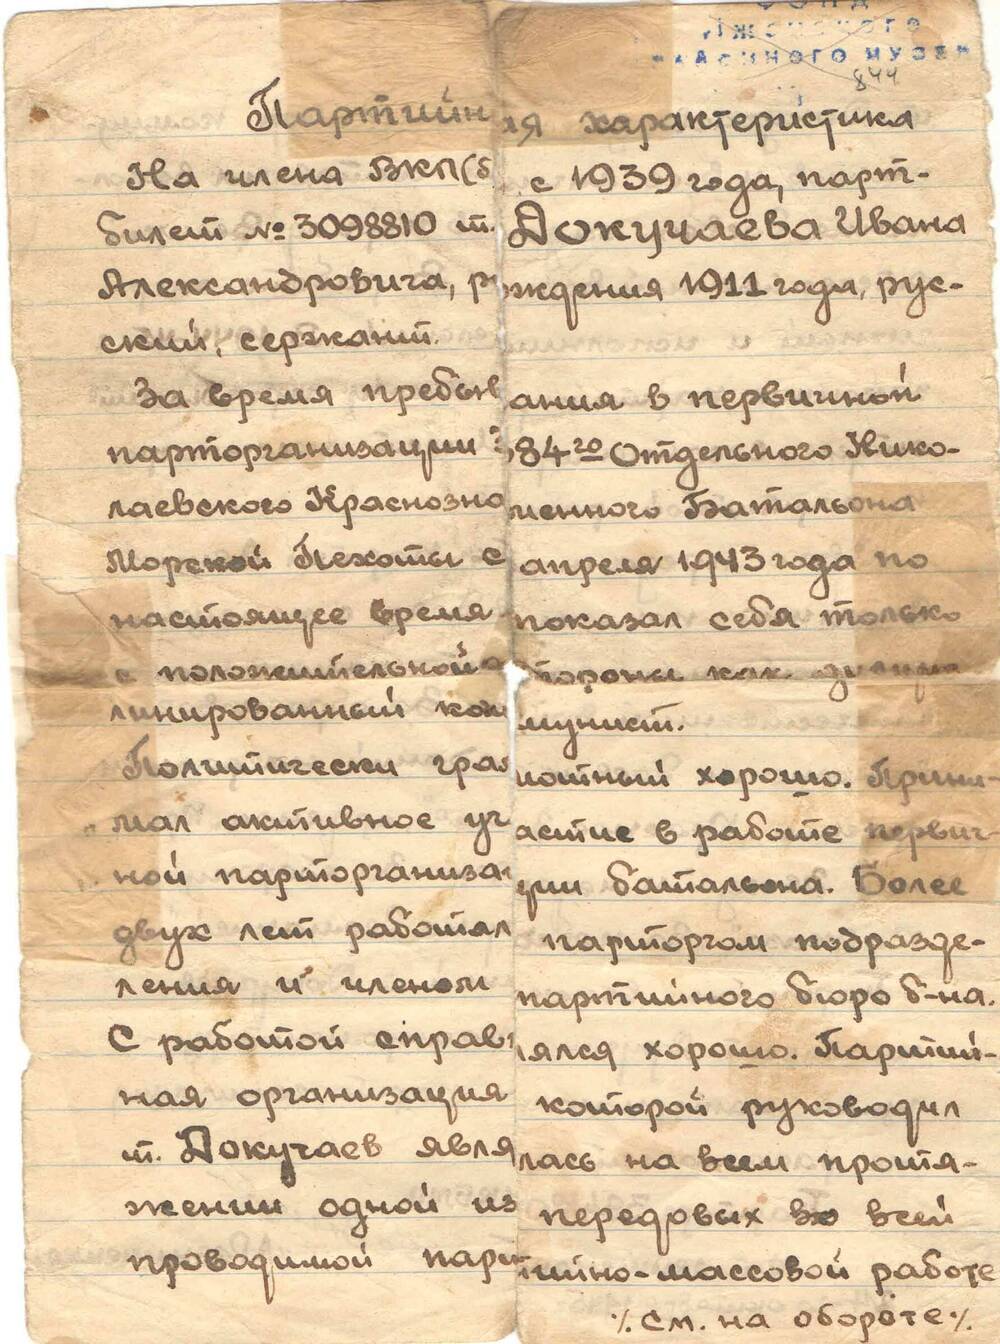 ФОНД
844
Партийная характеристика
На члена ВКП(б) с 1939 года, парт-
билет № 3098810 т. Докучаева Ивана
Александровича, рождения 1911 года, рус-
ский, сержант.
За время пребывания в первичной
парторганизации 384го Отдельного Нико-
лаевского Краснознаменного Батальона
Морской Пехоты с апреля 1943 года по
настоящее время показал себя только
с положительной стороны как дисцип-
линированный коммунист.
Политически грамотный хорошо. Прини-
мал активное участие в работе первич-
ной парторганизации батальона. Более
двух лет работал парторгом подразде-
ления и членом партийного бюро б-на.
С работой справлялся хорошо. Партий-
ная организация которой руководил
т. Докучаев являлась на всем протя-
жении одной из передовых во всей
проводимой партийно-массовой работе
٪ см. на обороте ٪